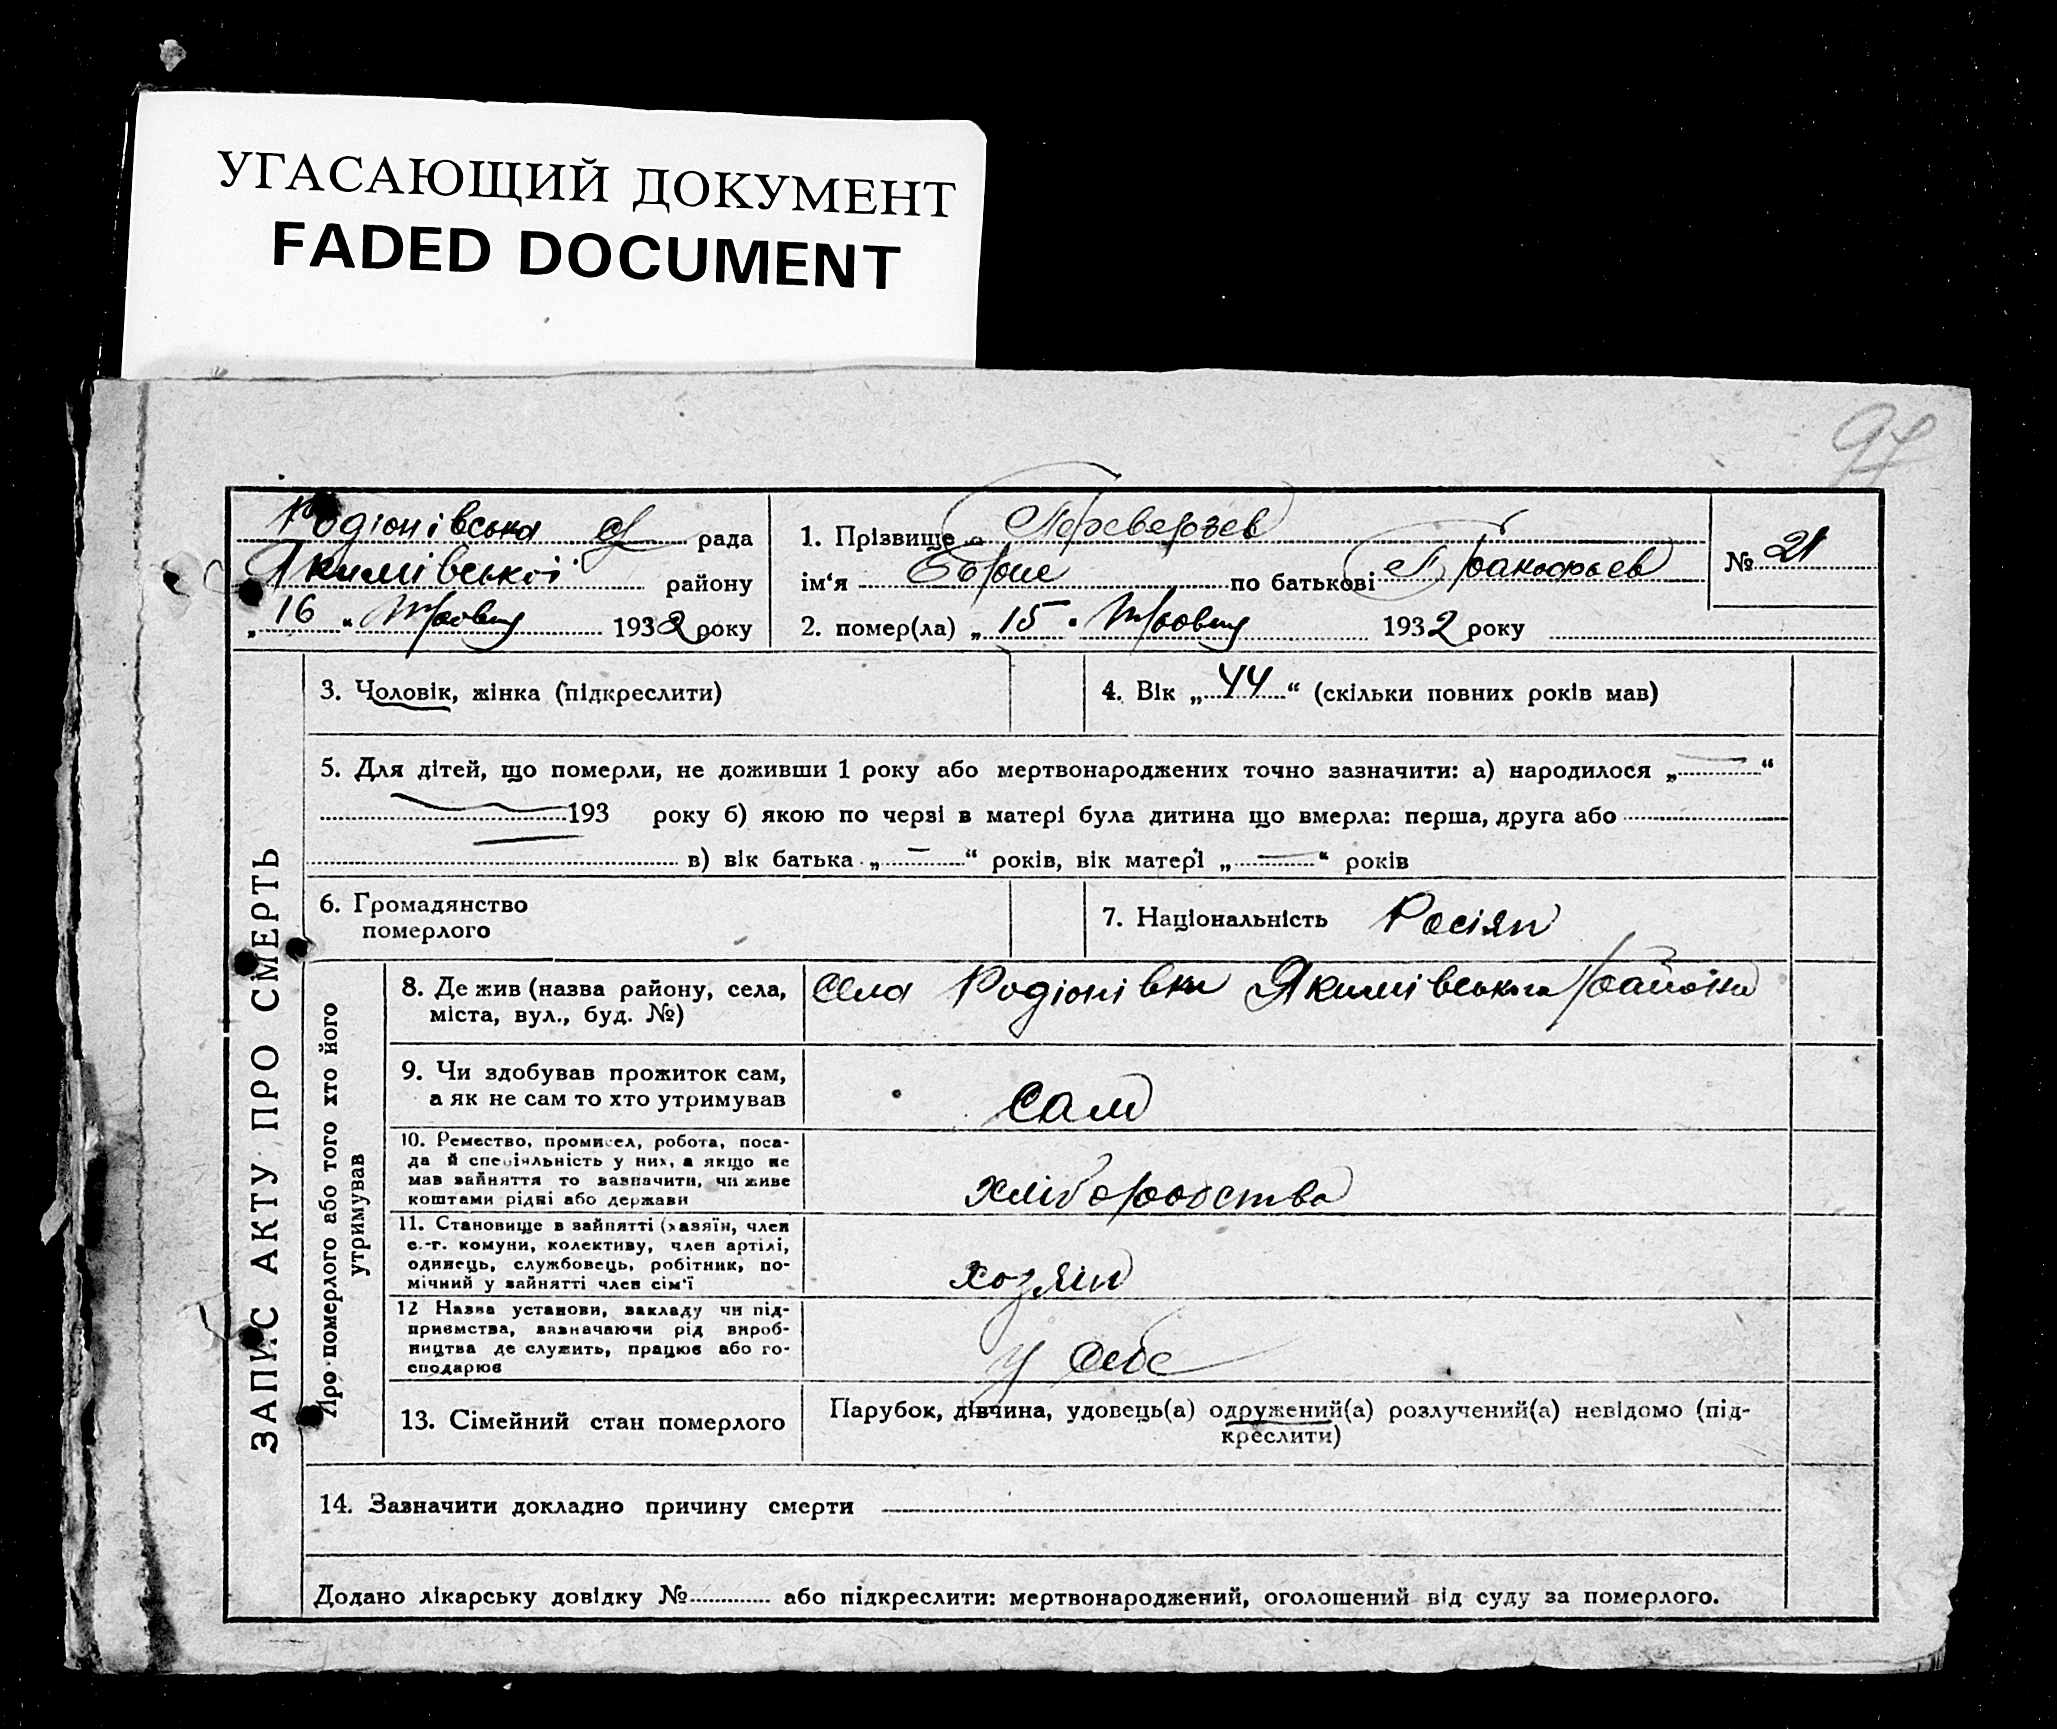 УГАСАЮЩИЙ ДОКУМЕНТ
FADED DOCUMENT
97
Родіонівська с/ рада
Якимівської району
„16“ Травня 1932 року
1. Прізвище Переверзев
ім‘я по батькові Пракофьев
2. помер(ла) „15 Травня 1932 року
№ 21
ЗАПИС АКТУ ПРО СМЕРТЬ
3. Чоловік, жінка (підкреслити)
4. Вік „44“ (скільки повних років мав)
5. Для дітей, що померли, не доживши 1 року або мертвонароджених точно зазначити: а) народилося „—“
193 року б) якою по черзі в матері була дитина що вмерла: перша, друга або
в) вік батька „—“ років, вік матері „—“ років
6. Громадянство
померлого
7. Національність Росіян
Про померлого або того хто його
утримував
8. Де жив (назва району, села,
міста, вул., буд. №)
села Родіонівки Якимівського району
9. Чи здобував прожиток сам,
а як не сам то хто утримував
сам
10. Ремество, промисел, робота, поса-
да й спеціяльність у них, а якщо не
мав зайняття то зазначити, чи живе
коштами рідні або держави
хліборобства
11. Становище в зайнятті (хазяїн, член
с.-г. комуни, колективу, член артілі,
одинець, службовець, робітник, по-
мічний у зайнятті член сім‘ї
хозяін
12 Назва установи, закладу чи під-
приємства, зазначаючи рід вироб-
ництва де служить, працює або го-
сподарює
у себе
13. Сімейний стан померлого
Парубок, дівчина, удовець(а) одружений(а) розлучений(а) невідомо (під-
креслити)
14. Зазначити докладно причину смерти
Додано лікарську довідку № або підкреслити: мертвонароджений, оголошений від суду за померлого.